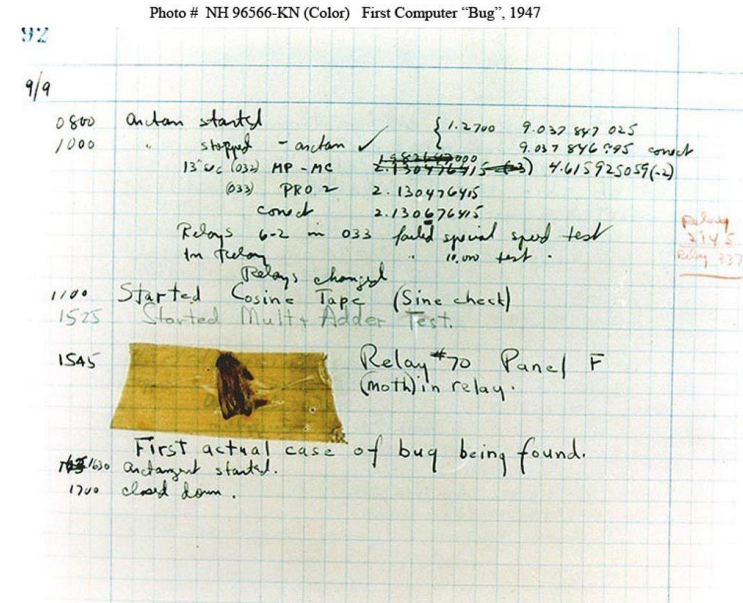 Photo # NH 96566-KN (Color) First Computer “Bug”, 1947
92
9/9
0800 antan started
1000 " stopped - antan ✓ { 1.2700 9.037 847 025
9.037 846 995 conect
13"uc (032) MP - MC 2.130476415 (-3) 4.615925059(-2)
(033) PRO 2 2.130476415
conect 2.130676415
Relays 6-2 in 033 failed special speed test
In Relay " 10,000 test .
Relays changed
1100 Started Cosine Tape (Sine check)
1525 Started Mult + Adder Test.
1545 Relay #70 Panel F
(moth) in relay.
First actual case of bug being found.
1630 antangent started.
1700 closed down .
Relay
Relay 337